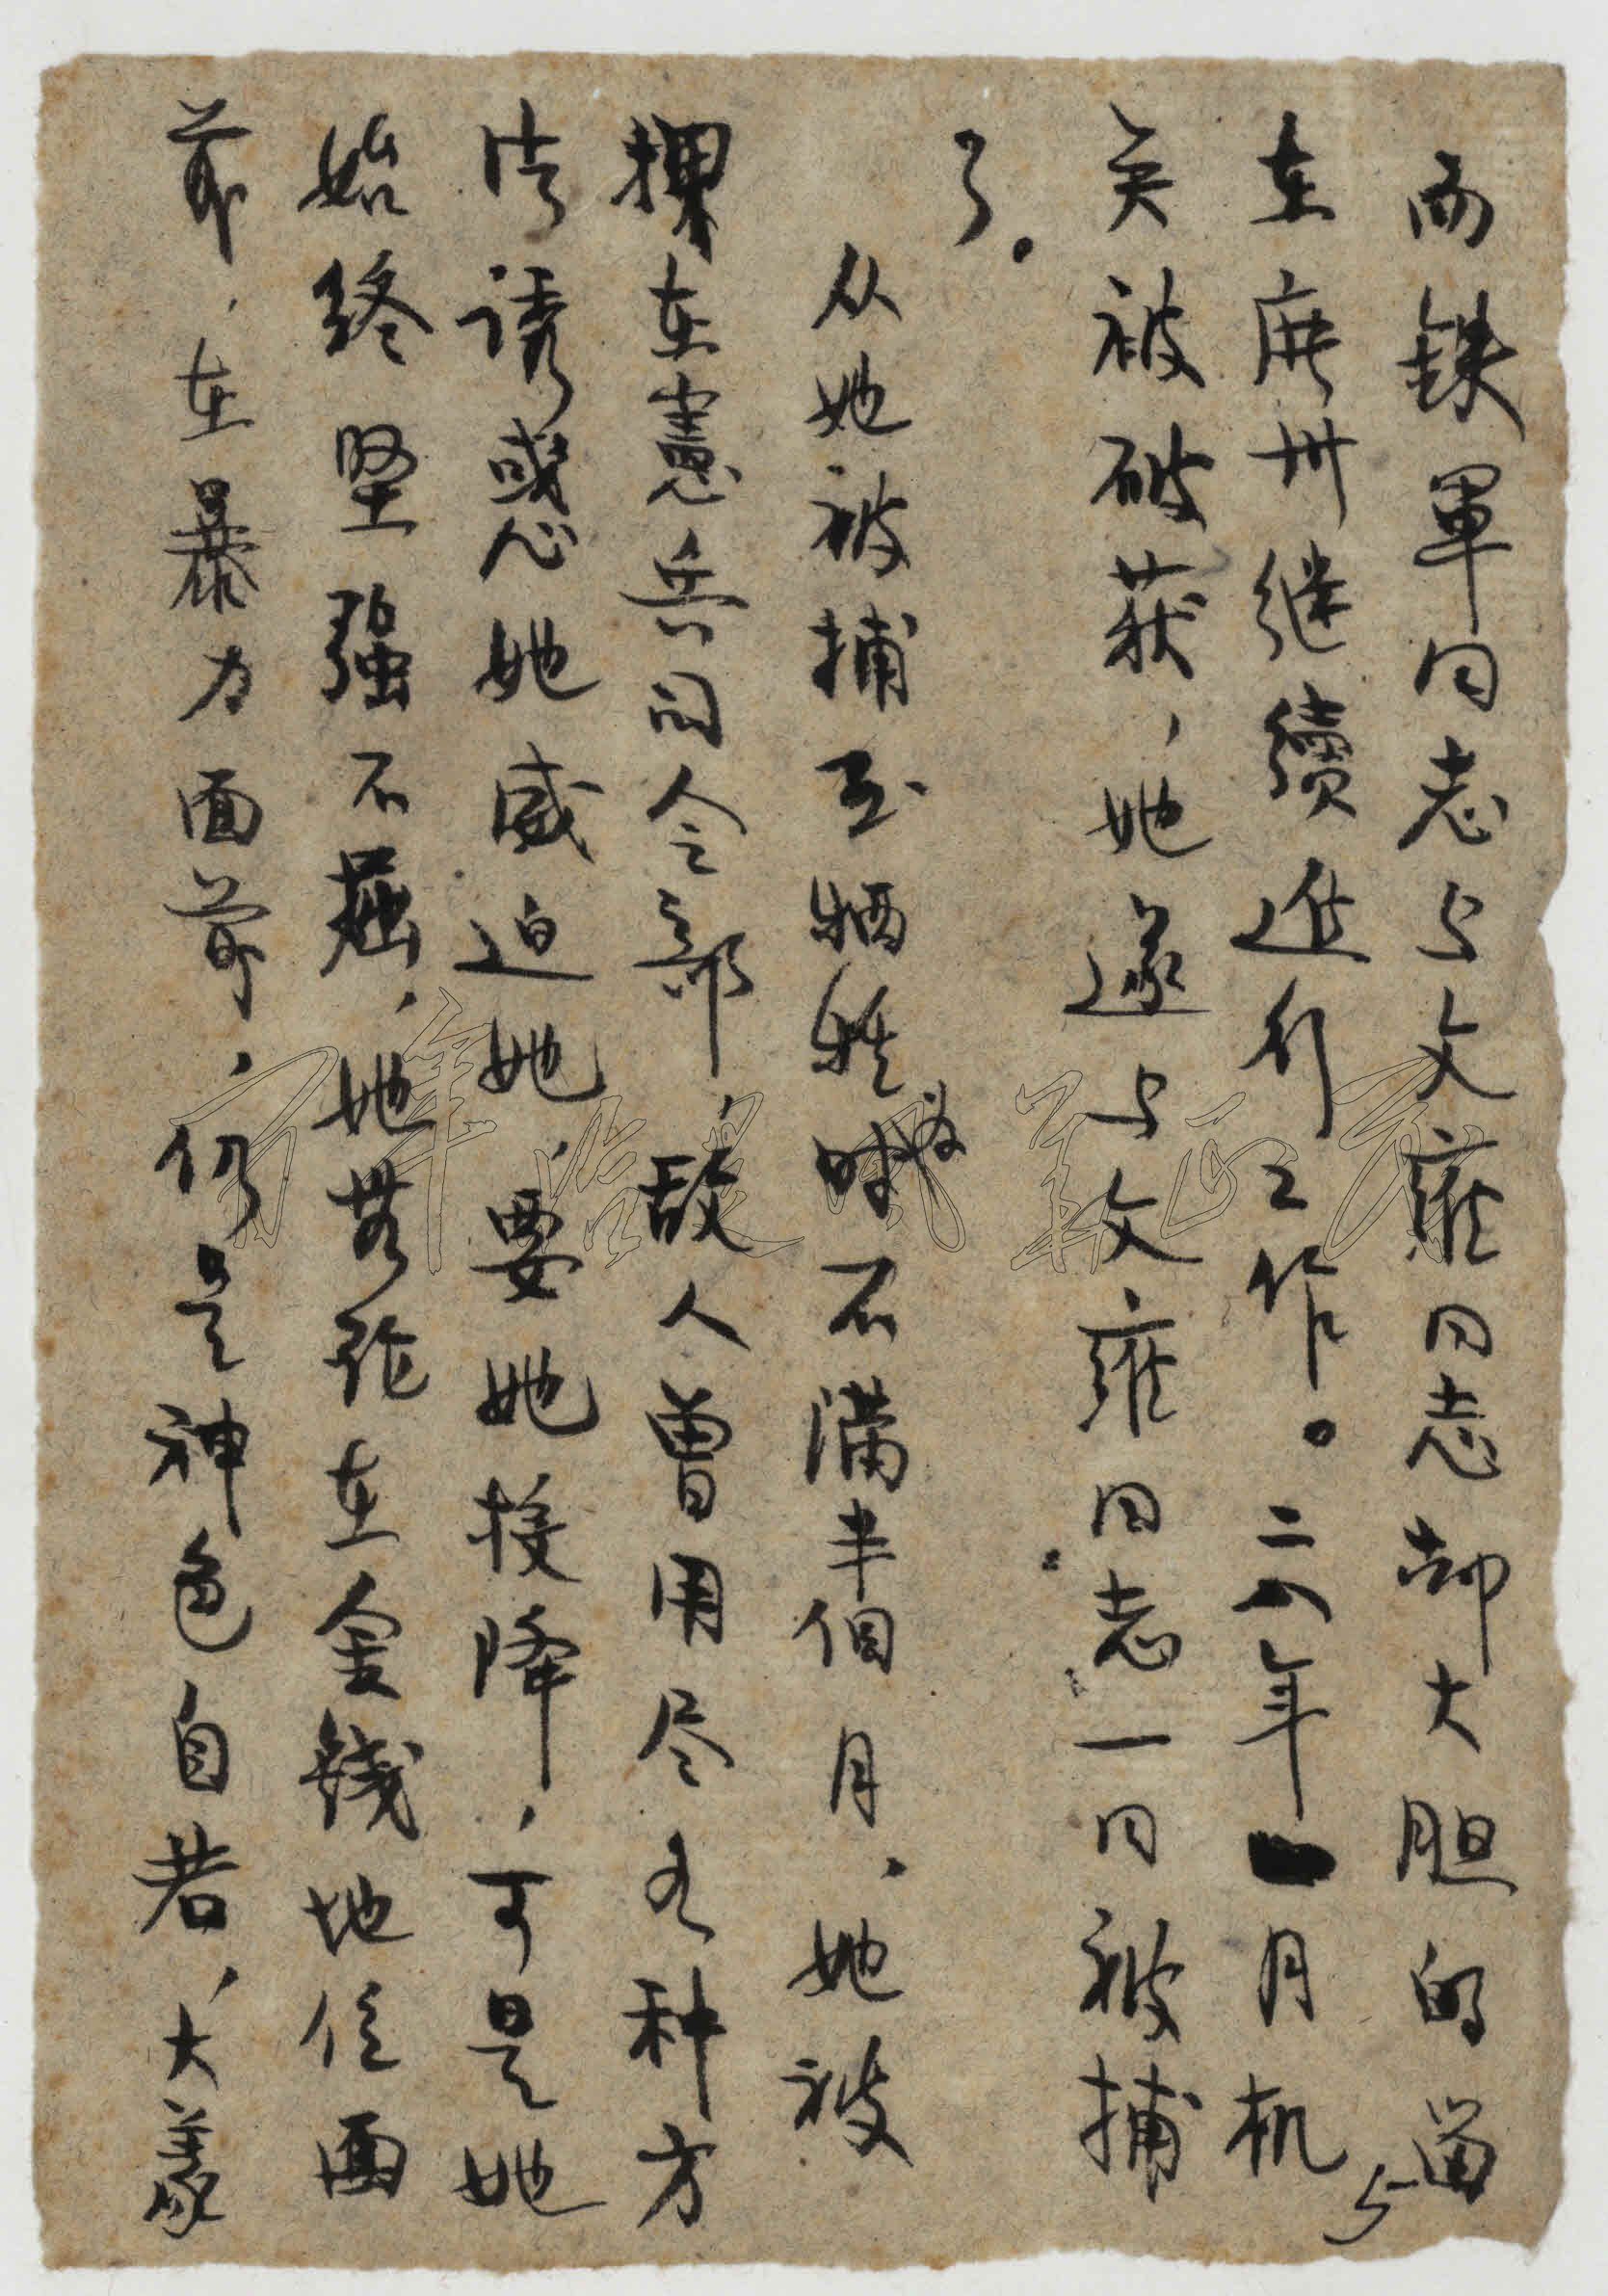 而铁軍同志与文雍同志却大胆的留
在廣州继續进行工作。二八年一月机
关被破获，她遂与文雍同志一同被捕
了。
从她被捕至牺牲时为不满半個月，她被
押在憲兵司令部，敌人曾用尽各种方
法诱惑她威迫她，要她投降，可是她
始终坚强不屈，她无论在金錢地位面
前，在暴力面前，仍是神色自若，大義
5